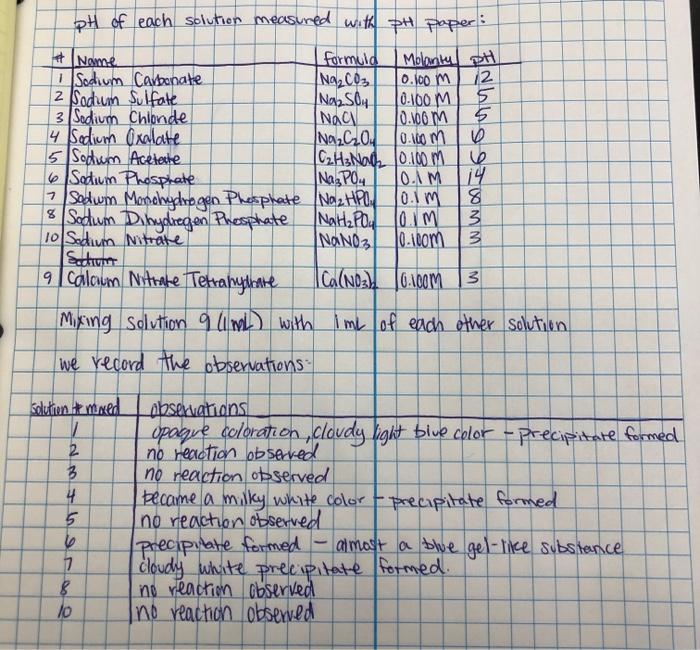 pH of each solution measured with pH paper:
# Name Formula Molarity pH
1 Sodium Carbonate Na2CO3 0.100 M 12
2 Sodium Sulfate Na2SO4 0.100 M 5
3 Sodium Chloride NaCl 0.100 M 5
4 Sodium Oxalate Na2C2O4 0.100 M 6
5 Sodium Acetate C2H3NaO2 0.100 M 6
6 Sodium Phosphate Na3PO4 0.1 M 14
7 Sodium Monohydrogen Phosphate Na2HPO4 0.1 M 8
8 Sodium Dihydrogen Phosphate NaH2PO4 0.1 M 3
10 Sodium Nitrate NaNO3 0.100M 3
Sodium
9 Calcium Nitrate Tetrahydrate Ca(NO3)2 0.100M 3
Mixing solution 9 (1mL) with 1mL of each other solution
we record the observations:
solution # mixed observations
1 opaque coloration, cloudy light blue color - precipitate formed
2 no reaction observed
3 no reaction observed
4 became a milky white color - precipitate formed
5 no reaction observed
6 precipitate formed - almost a blue gel-like substance
7 cloudy white precipitate formed.
8 no reaction observed
10 no reaction observed